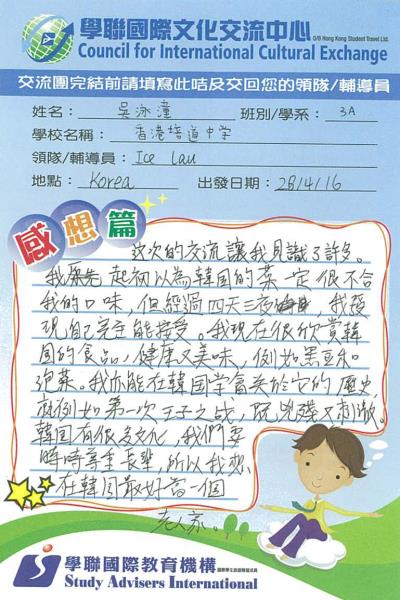 學聯國際文化交流中心
O/B Hong Kong Student Travel Ltd.
Council for International Cultural Exchange
交流團完結前請填寫此咭及交回您的領隊/輔導員
姓名: 吳泳潼 班別/學系: 3A
學校名稱: 香港培道中学
領隊/輔導員: Ice Lau
地點: Korea 出發日期: 28/4/16
感想篇
這次的交流讓我見識了許多。
我 起初以為韓国的菜一定很不合
我的口味,但經過四天三夜 ,我發
現自己完全能接受。我現在很欣賞韓
国的食品,健康又美味,例如黑豆和
泡菜。我亦能在韓国学習关於它的歷史,
就例如第一次王子之战,既 又刺激。
韓国有很多文化,我們要
時時尊重長輩,所以我想
在韓国最好當一個
老人家。
學聯國際教育機構
Study Advisers International